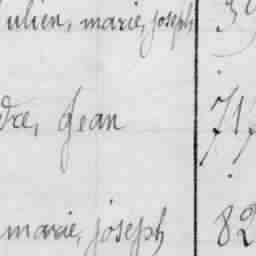 Julien, marie, joseph 39
dre, Jean 717
marie, joseph 82